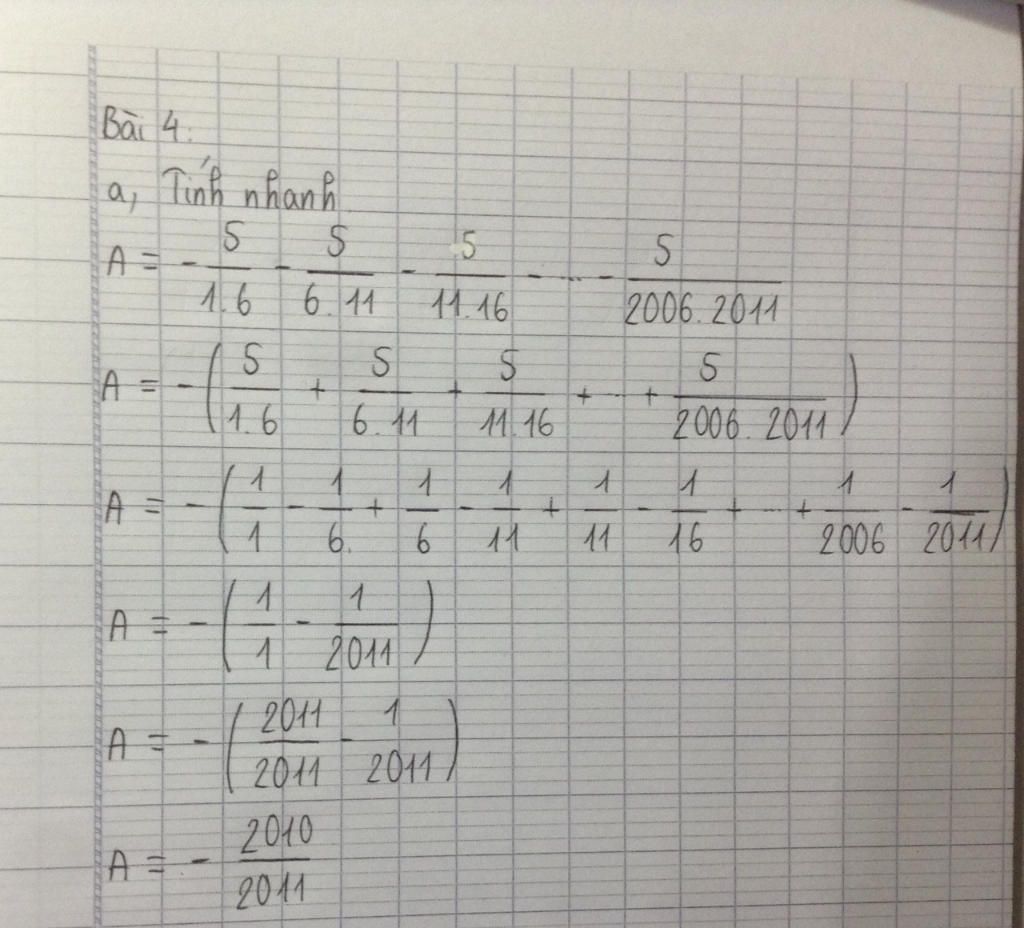 Bài 4:
a, Tính nhanh
A = - 5/1.6 - 5/6.11 - 5/11.16 - ... - 5/2006.2011
A = - ( 5/1.6 + 5/6.11 + 5/11.16 + ... + 5/2006.2011 )
A = - ( 1/1 - 1/6. + 1/6 - 1/11 + 1/11 - 1/16 + ... + 1/2006 - 1/2011 )
A = - ( 1/1 - 1/2011 )
A = - ( 2011/2011 - 1/2011 )
A = - 2010/2011